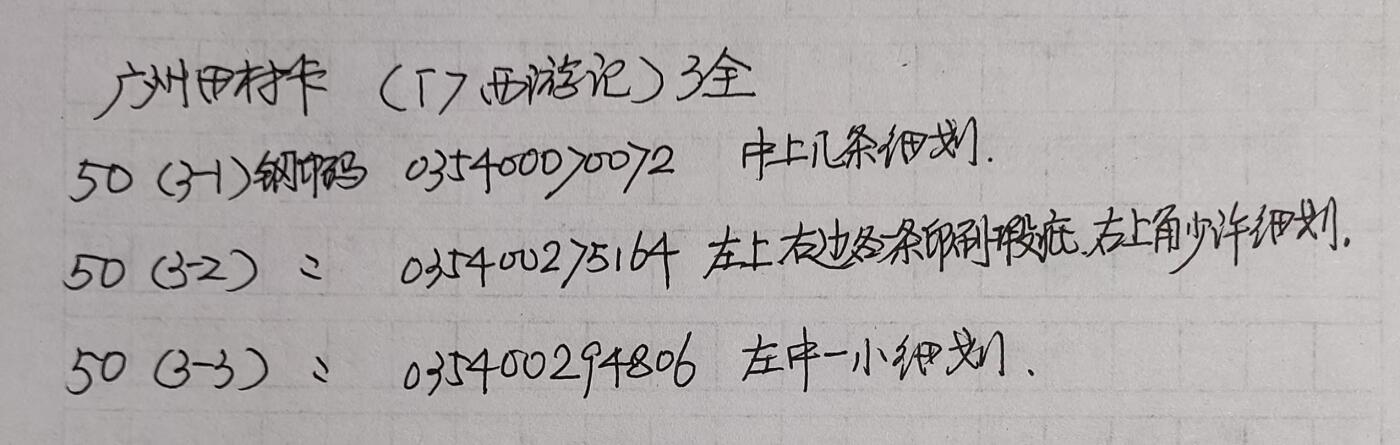 广州田村卡 (T7西游记) 3全
50 (3-1) 钢印码 035400070072 中上几条细划.
50 (3-2) 〃 035400275164 左上右边各条印刷瑕疵.右上角少许细划.
50 (3-3) 〃 035400294806 左中一小细划.